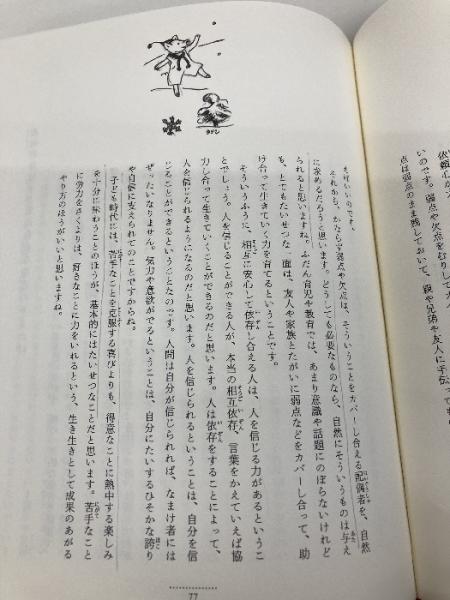 依頼心が
いのです。弱点や欠点をむりして
点は弱点のまま残しておいて、親や兄弟や友人に手伝
えばいいのです。
それから、かならず弱点や欠点は、そういうことをカバーし合える配偶者を、自然
に求めるだろうと思います。どうしても必要なものなら、自然にそういうものは与え
られると思いますね。ふだん育児や教育では、あまり意識や話題にのぼらないけれど
も、とてもたいせつな一面は、友人や家族とたがいに弱点などをカバーし合って、助
け合って生きていく力を育てるということです。
そういうふうに、相互に安心して依存し合える人は、人を信じる力があるというこ
とでしょう。人を信じることができる人が、本当の相互依存、言葉をかえていえば協
力し合って生きていくことができるのだと思います。人は依存をすることによって、
人を信じられるようになるのだと思います。人を信じられるということは、自分を信
じることができるということなのです。人間は自分が信じられれば、なまけ者には
ぜったいなりません。気力や意欲がでるということは、自分にたいするひそかな誇り
や自信に支えられてのことですからね。
子ども時代には、苦手なことを克服する喜びよりも、得意なことに熱中する楽しみ
を十分に味わうことのほうが、基本的にはたいせつなことだと思います。苦手なこと
に労力をさくよりは、好きなことに力をいれるという、生き生きとして成果のあがる
やり方のほうがいいと思いますね。
77